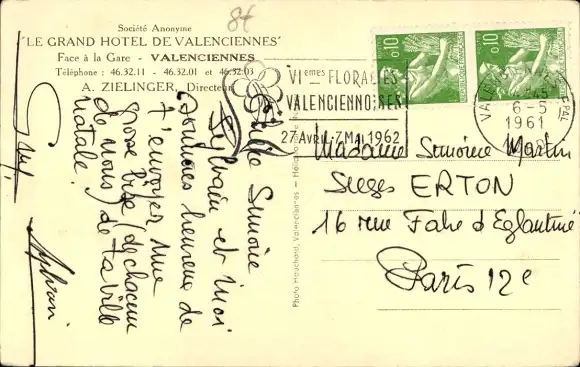 8€
Société Anonyme
"LE GRAND HOTEL DE VALENCIENNES"
Face à la Gare - VALENCIENNES
Téléphone : 46.32.11 - 46.32.01 et 46.32.03
A. ZIELINGER, Directeur
VIemes FLORALIES
VALENCIENNOISES
27 Avril-7 Mai 1962
0,10
0,10
6-5
1961
Simone
Sylvain et moi
sommes heureux de
t'envoyer une
grosse bise (de chacun
de nous) de ta ville
natale.
Madame Simone Martin
ERTON
16 rue Fabre d'Eglantine
Paris 12e
Photo Mouchard, Valenciennes